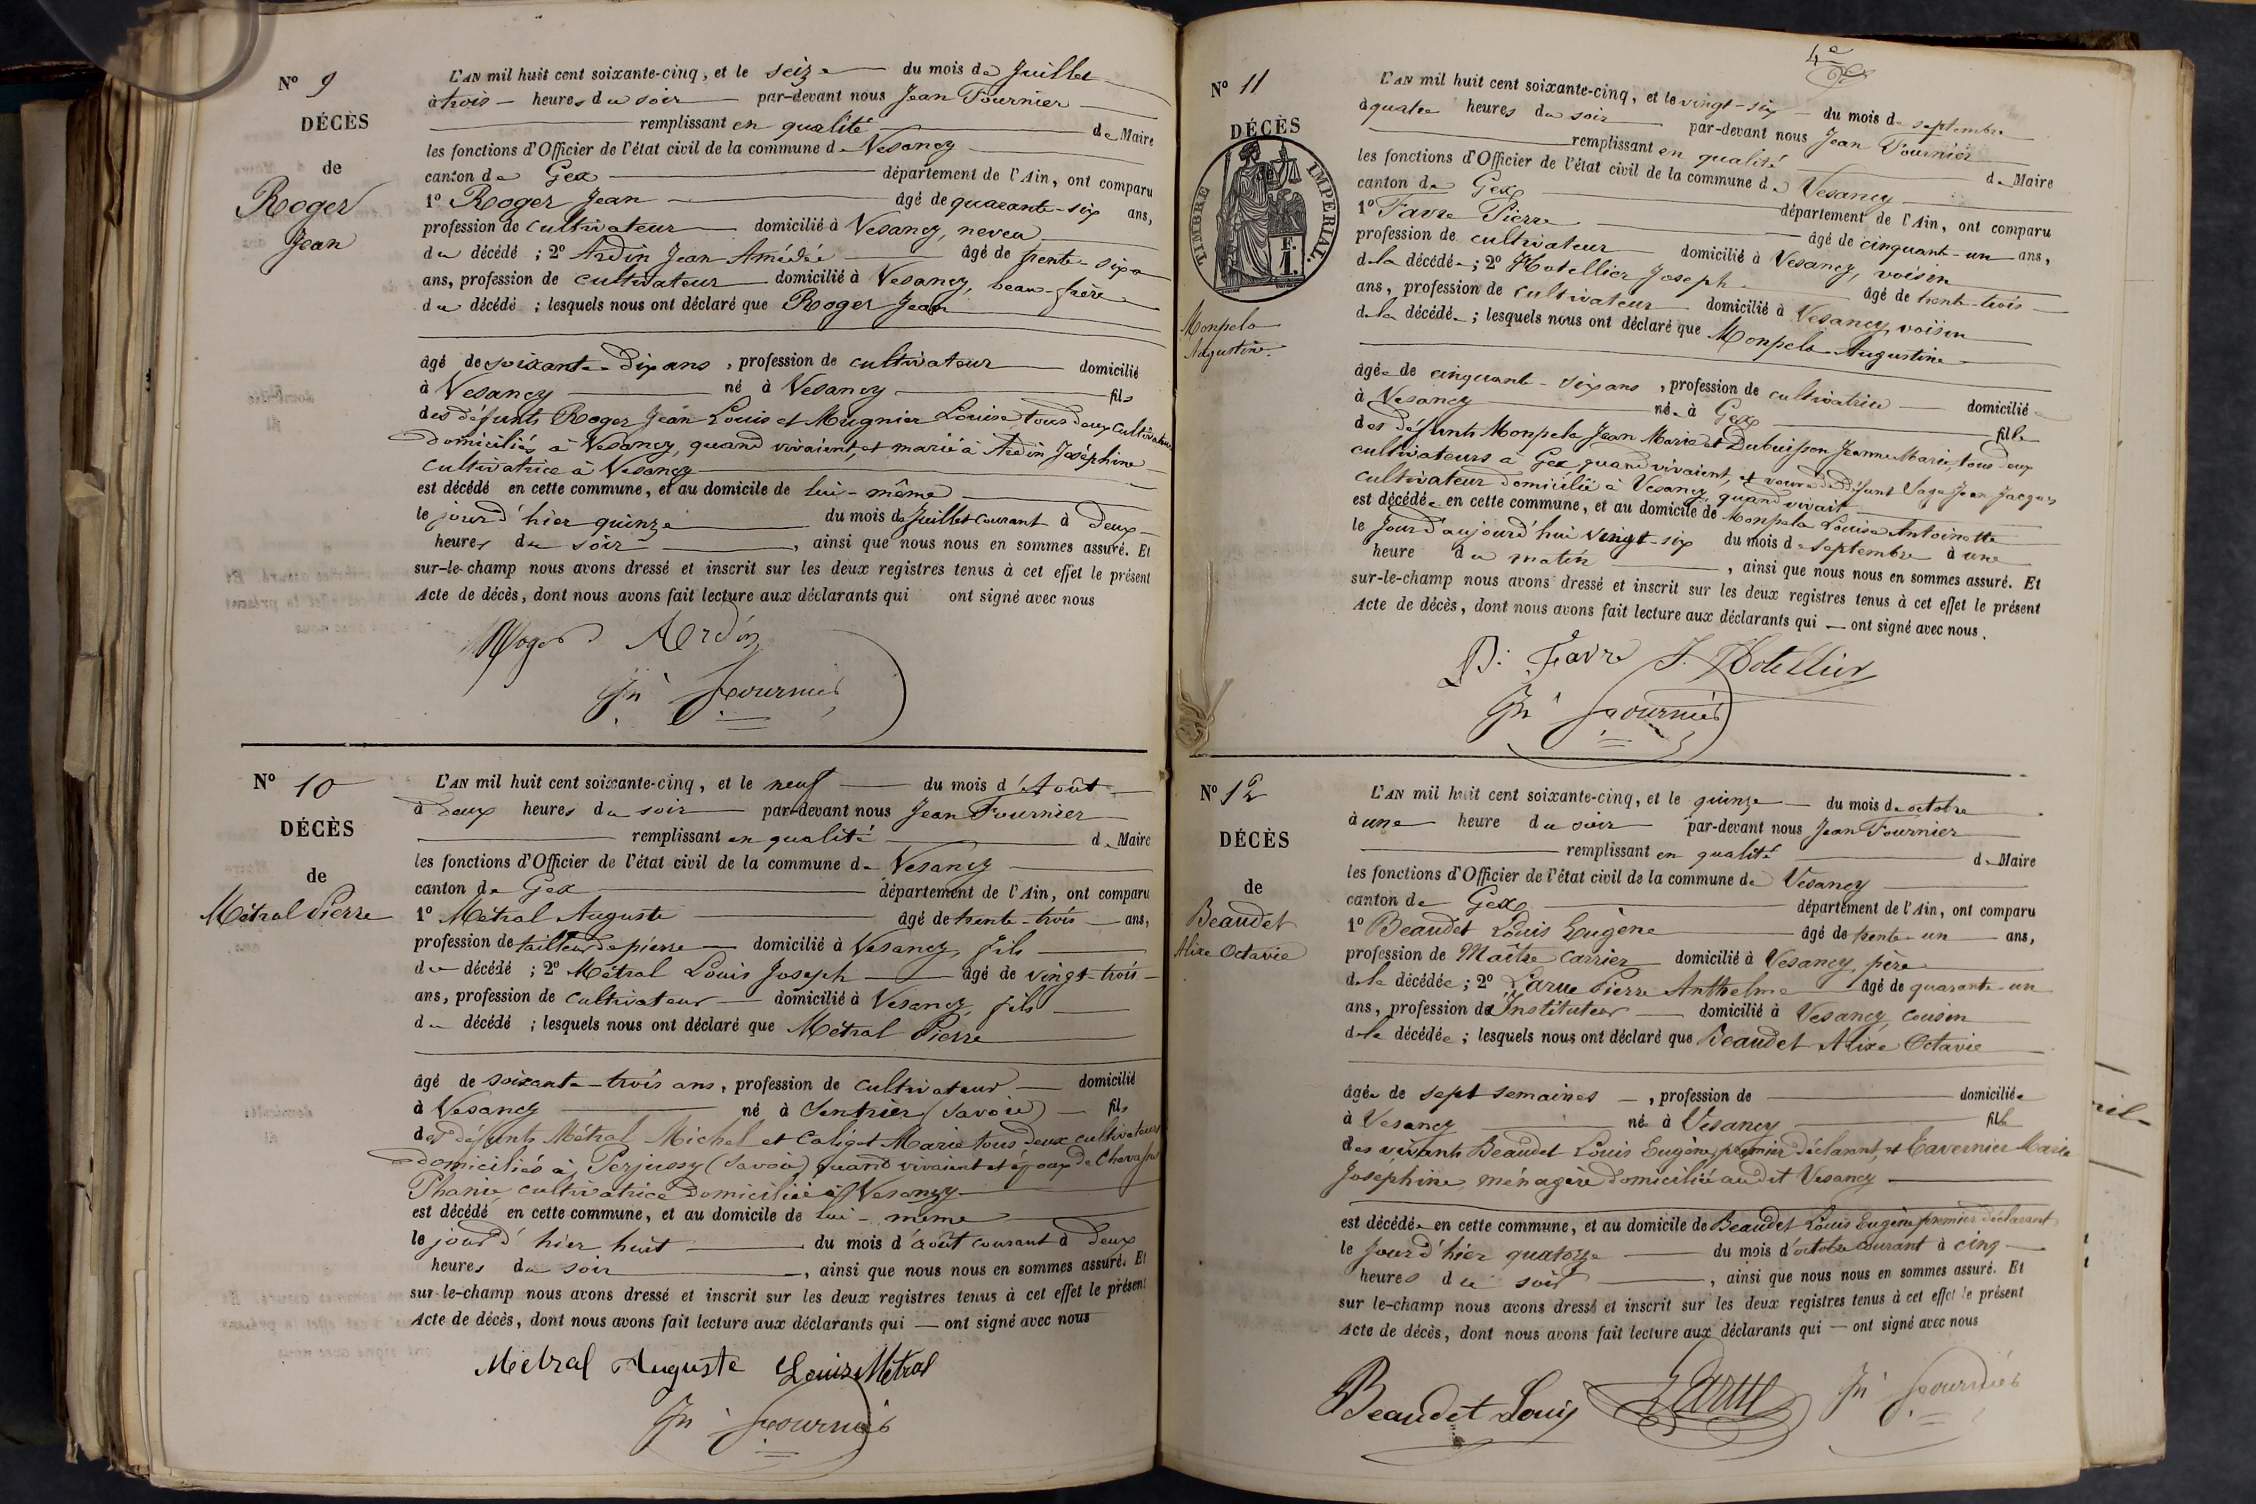 N° 9
DÉCÈS
de
Roger
Jean
L'AN mil huit cent soixante-cinq, et le seize du mois de Juillet
à trois heures du soir par-devant nous Jean Fournier
remplissant en qualité de Maire
les fonctions d'Officier de l'état civil de la commune de Vesancy
canton de Gex département de l'Ain, ont comparu
1° Roger Jean âgé de quarante-six ans,
profession de cultivateur domicilié à Vesancy, neveu
du décédé ; 2° Ardin Jean Amédée âgé de trente-six
ans, profession de cultivateur domicilié à Vesancy, beau-frère
du décédé ; lesquels nous ont déclaré que Roger Jean
âgé de soixante-dix ans, profession de cultivateur domicilié
à Vesancy né à Vesancy fils
des défunts Roger Jean Louis et Mugnier Louise tous deux cultivateurs
domiciliés à Vesancy, quand vivaient, et marié à Ardin Joséphine
cultivatrice à Vesancy
est décédé en cette commune, et au domicile de lui-même
le jour d'hier quinze du mois de Juillet courant à deux
heures du soir, ainsi que nous nous en sommes assuré. Et
sur-le-champ nous avons dressé et inscrit sur les deux registres tenus à cet effet le présent
Acte de décès, dont nous avons fait lecture aux déclarants qui ont signé avec nous
Roger Ardin
Jn Fournier
N° 10
DÉCÈS
de
Métral Pierre
L'AN mil huit cent soixante-cinq, et le neuf du mois d'Août
à deux heures du soir par-devant nous Jean Fournier
remplissant en qualité de Maire
les fonctions d'Officier de l'état civil de la commune de Vesancy
canton de Gex département de l'Ain, ont comparu
1° Métral Auguste âgé de trente-trois ans,
profession de tailleur de pierre domicilié à Vesancy, fils
du décédé ; 2° Métral Louis Joseph âgé de vingt-trois
ans, profession de cultivateur domicilié à Vesancy, fils
du décédé ; lesquels nous ont déclaré que Métral Pierre
âgé de soixante-trois ans, profession de cultivateur domicilié
à Vesancy né à Sentrier (Savoie) fils
des défunts Métral Michel et Caligot Marie tous deux cultivateurs
domiciliés à Perjussy (Savoie) quand vivaient et époux de
Phanie cultivatrice domiciliée à Vesancy
est décédé en cette commune, et au domicile de lui-même
le jour d'hier huit du mois d'août courant à deux
heures du soir, ainsi que nous nous en sommes assuré. Et
sur-le-champ nous avons dressé et inscrit sur les deux registres tenus à cet effet le présent
Acte de décès, dont nous avons fait lecture aux déclarants qui — ont signé avec nous
Métral Auguste Louis Métral
Jn Fournier
4e
N° 11
DÉCÈS
de
TIMBRE IMPÉRIAL
F.
1.
Monpela
Augustine.
L'AN mil huit cent soixante-cinq, et le vingt-six du mois de septembre
à quatre heures du soir par-devant nous Jean Fournier
remplissant en qualité de Maire
les fonctions d'Officier de l'état civil de la commune de Vesancy
canton de Gex département de l'Ain, ont comparu
1° Favre Pierre âgé de cinquante-un ans,
profession de cultivateur domicilié à Vesancy, voisin
de la décédée ; 2° Hotellier Joseph âgé de trente-trois
ans, profession de cultivateur domicilié à Vesancy, voisin
de la décédée ; lesquels nous ont déclaré que Monpela Augustine
âgée de cinquante-six ans, profession de cultivatrice domiciliée
à Vesancy née à Gex fille
des défunts Monpela Jean Marie et Dubuisson Jeanne Marie, tous deux
cultivateurs à Gex, quand vivaient, et veuve de défunt Sage Jean Jacques
cultivateur domicilié à Vesancy, quand vivait
est décédée en cette commune, et au domicile de Monpela Louise Antoinette
le Jour d'aujourd'hui vingt-six du mois de septembre à une
heure du matin, ainsi que nous nous en sommes assuré. Et
sur-le-champ nous avons dressé et inscrit sur les deux registres tenus à cet effet le présent
Acte de décès, dont nous avons fait lecture aux déclarants qui — ont signé avec nous.
P. Favre J. Hotellier
Jn Fournier
N° 12
DÉCÈS
de
Beaudet
Alixe Octavie
L'AN mil huit cent soixante-cinq, et le quinze du mois de octobre
à une heure du soir par-devant nous Jean Fournier
remplissant en qualité de Maire
les fonctions d'Officier de l'état civil de la commune de Vesancy
canton de Gex département de l'Ain, ont comparu
1° Beaudet Louis Eugène âgé de trente-un ans,
profession de Maître Carrier domicilié à Vesancy, père
de la décédée ; 2° Larue Pierre Anthelme âgé de quarante-un
ans, profession de Instituteur domicilié à Vesancy, cousin
de la décédée ; lesquels nous ont déclaré que Beaudet Alixe Octavie
âgée de sept semaines, profession de domiciliée
à Vesancy née à Vesancy fille
des vivants Beaudet Louis Eugène, premier déclarant, et Tavernier Marie
Joséphine, ménagère domiciliée au dit Vesancy
est décédée en cette commune, et au domicile de Beaudet Louis Eugène premier déclarant
le Jour d'hier quatorze du mois d'octobre courant à cinq
heures du soir, ainsi que nous nous en sommes assuré. Et
sur le-champ nous avons dressé et inscrit sur les deux registres tenus à cet effet le présent
Acte de décès, dont nous avons fait lecture aux déclarants qui — ont signé avec nous
Beaudet Louis Larue Jn Fournier